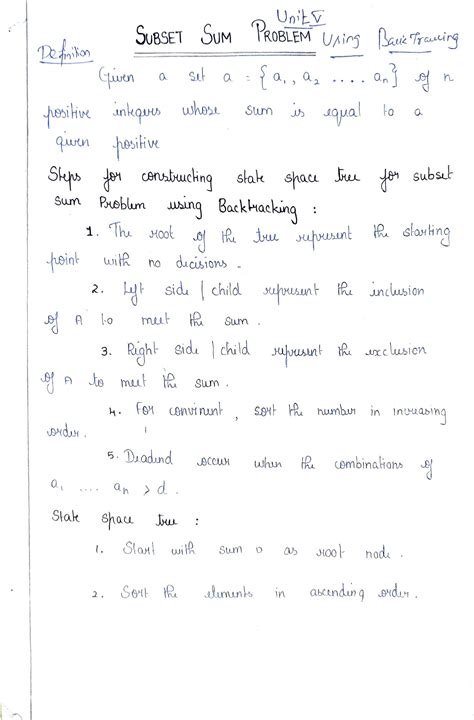 Unit V
SUBSET SUM PROBLEM Using BackTracing
Definition
Given a set a = {a₁, a₂ .... aₙ} of n
positive integers whose sum is equal to a
given positive
Steps for constructing state space tree for subset
sum Problem using Backtracking :
1. The root of the tree represent the starting
point with no decisions .
2. Left side | child represent the inclusion
of A to meet the sum .
3. Right side | child represent the exclusion
of A to meet the sum .
4. For convinent , sort the number in increasing
order .
5. Deadend occur when the combinations of
a₁ .... aₙ > d .
State space tree :
1. Start with sum 0 as root node .
2. Sort the elements in ascending order .